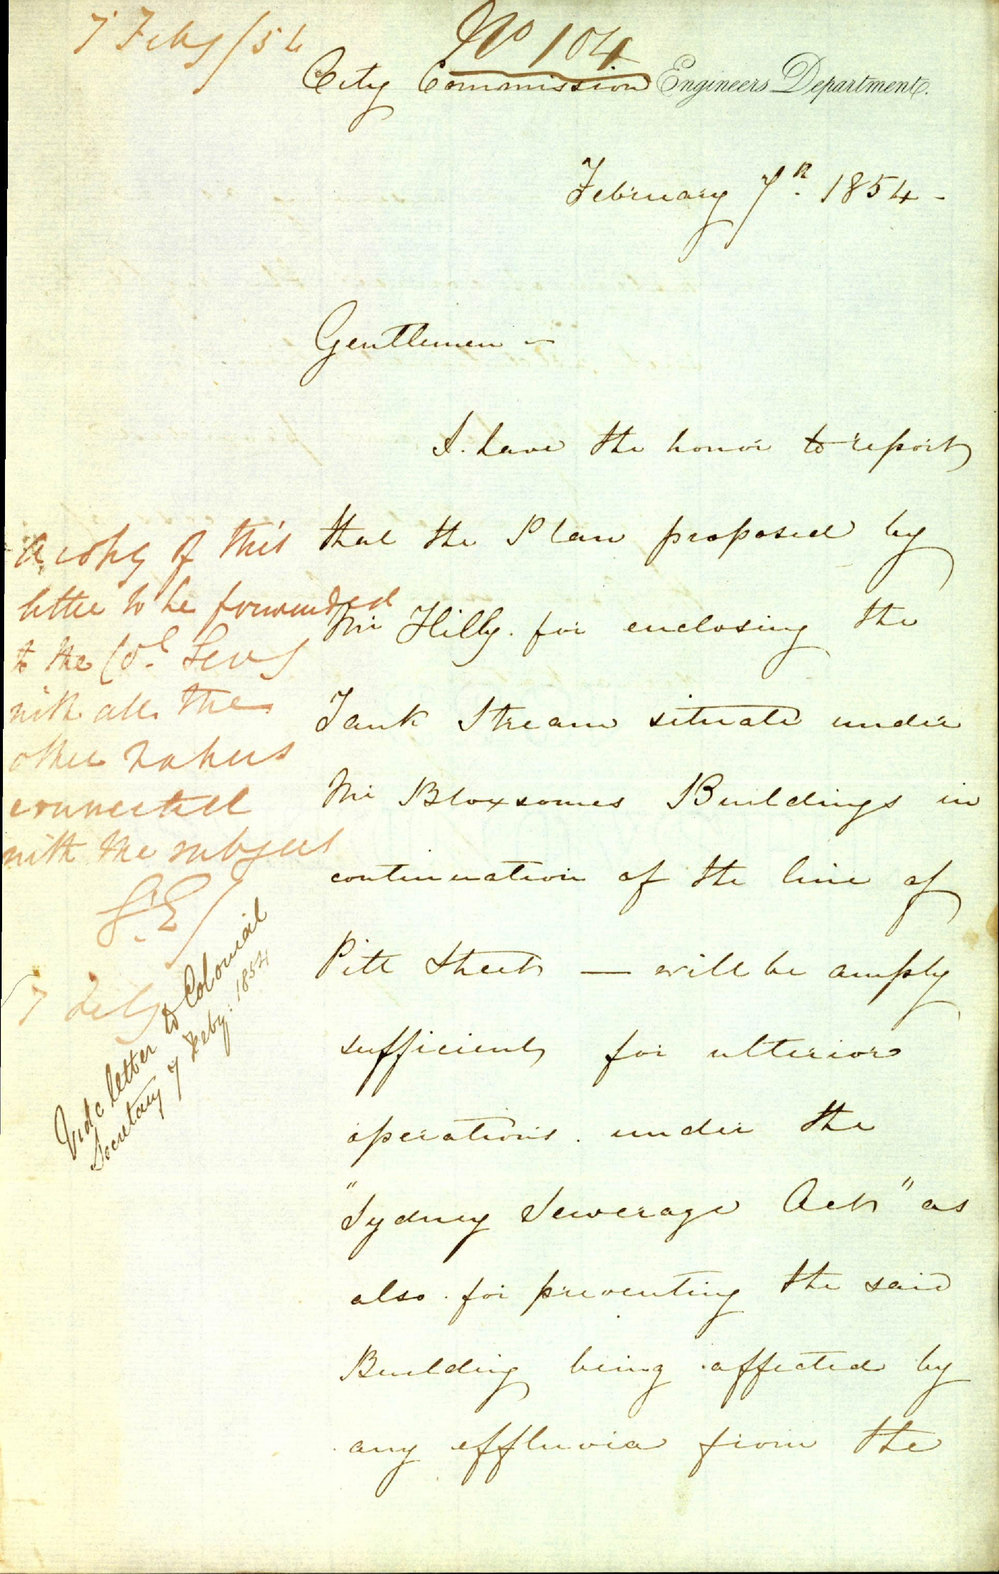 7 Feby/54
No 104
City Commission Engineers Department.
February 7th 1854 -
Gentlemen -
I have the honor to report
that the Plan proposed by
Mr Hilly for enclosing the
Tank Stream situate under
Mr Bloxsomes Buildings in
continuation of the line of
Pitt Street — will be amply
sufficient for ulterior
operations under the
"Sydney Sewerage Act" as
also for preventing the said
Building being affected by
any effluvia from the
A copy of this
letter to be forwarded
to the Col Secy
with all the
other papers
connected
with the subject
G.E
7 Feby
Vide letter to Colonial
Secretary 7 Feby: 1854